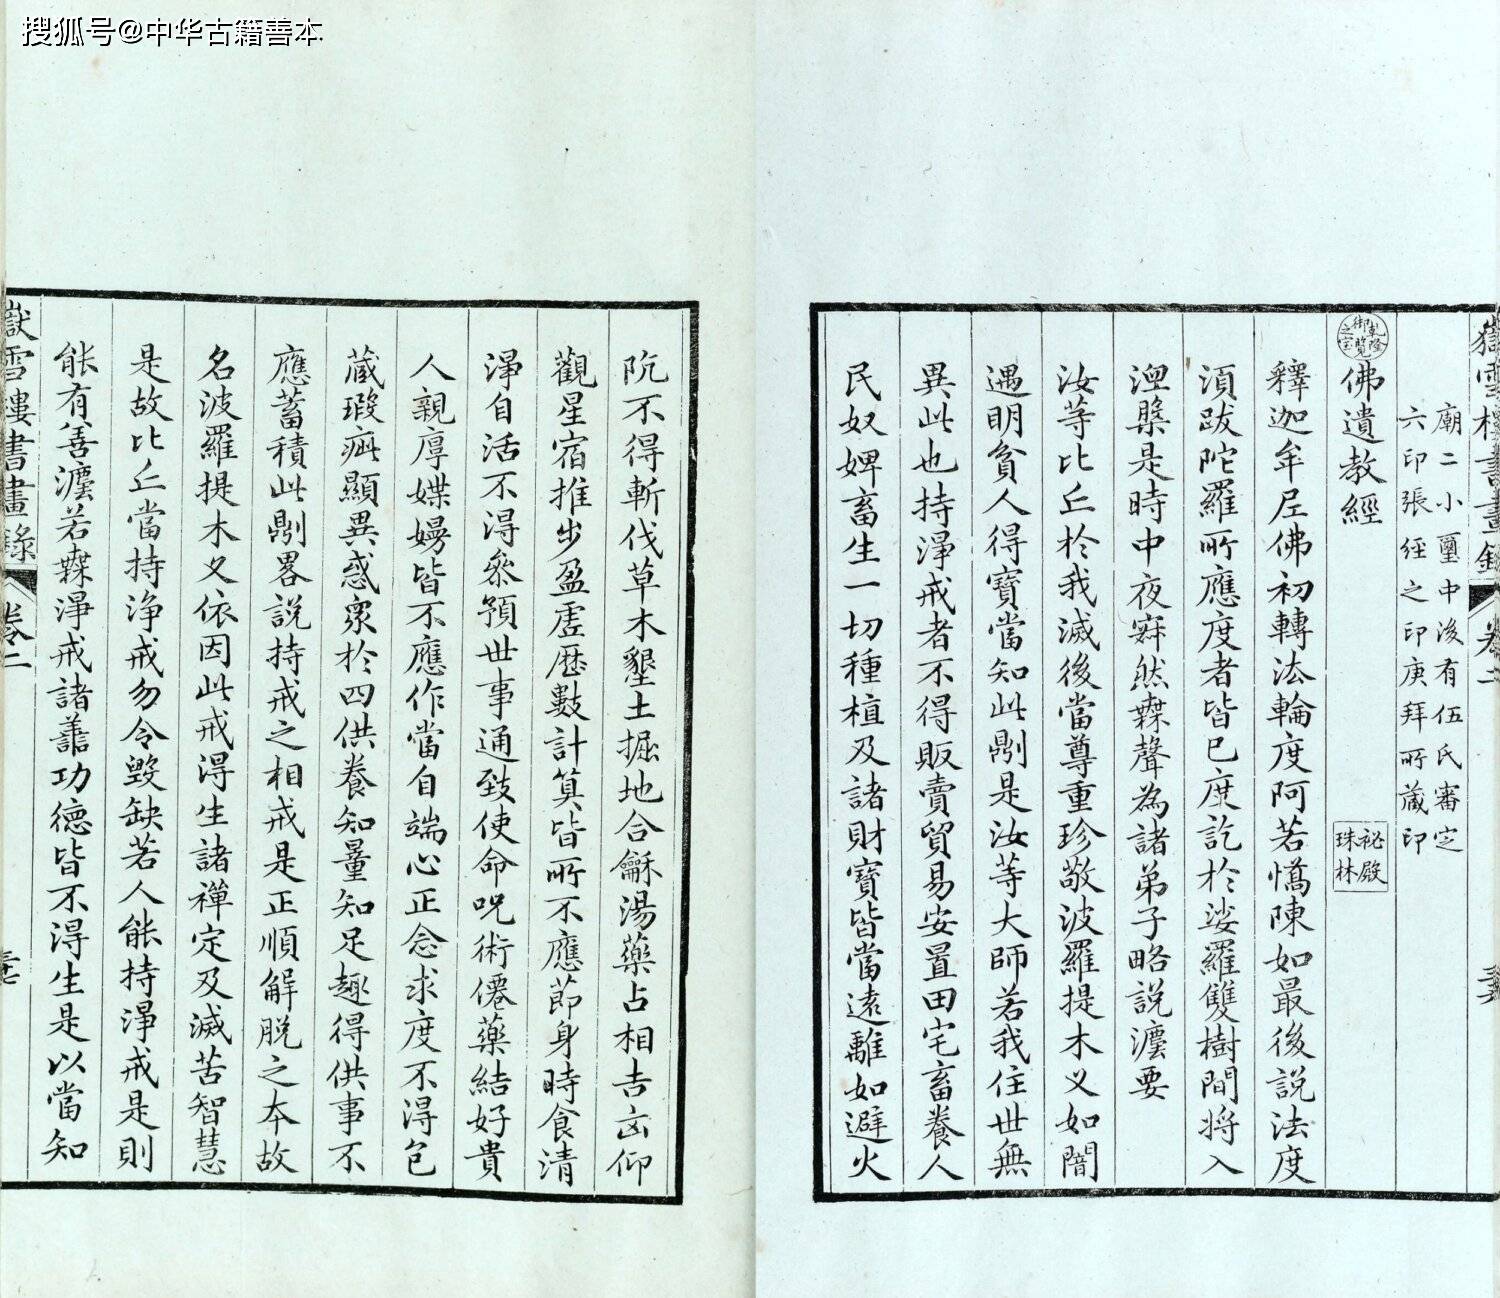 搜狐号@中华古籍善本
嶽雪樓書畫錄 卷二
廟二小璽中後有伍氏審定
六印張經之印庚拜所藏印
乾隆御覽之宝
佛遺教經
祕殿珠林
釋迦牟尼佛初轉法輪度阿若憍陳如最後說法度
須跋陀羅所應度者皆已度訖於娑羅雙樹間將入
涅槃是時中夜寂然無聲為諸弟子略說灋要
汝等比丘於我滅後當尊重珍敬波羅提木义如闇
遇明貧人得寶當知此劓是汝等大師若我住世無
異此也持淨戒者不得販賣貿易安置田宅畜養人
民奴婢畜生一切種植及諸財寶皆當遠離如避火
阬不得斬伐草木墾土掘地合龢湯藥占相吉凶仰
觀星宿推步盈虛歷數計筭皆所不應節身時食清
淨自活不得叅預世事通致使命呪術僊藥結好貴
人親厚媟嫚皆不應作當自端心正念求度不得包
藏瑕疵顯異惑衆於四供養知量知足趣得供事不
應蓄積此劓畧說持戒之相戒是正順解脫之本故
名波羅提木义依因此戒得生諸禪定及滅苦智慧
是故比丘當持淨戒勿令毀缺若人能持淨戒是則
能有善灋若無淨戒諸善功德皆不得生是以當知
嶽雪樓書畫錄 卷二